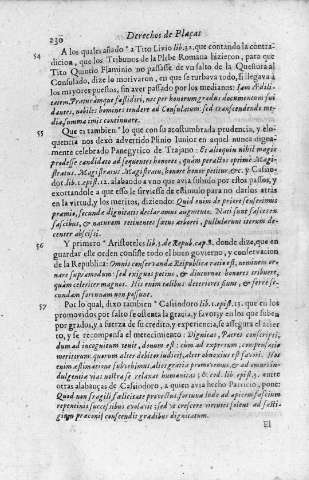 230
Derechos de Plaças
54 A los quales añado a Tito Livio lib. 32. que contando la contra-
dicion, que los Tribunos de la Plebe Romana hizieron, para que
Tito Quintio Flaminio no passasse de un salto de la Questura al
Consulado, dize lo motivaron, en que se turbava todo, si llegava à
los mayores puestos, sin aver passado por los medianos: Iam Ædili-
tatem, Præturamque fastidiri, nec per honorum gradus documentum sui
dantes, nobiles homines tendere ad Consulatum, sed transcendendo me-
dia, summa imis continuare.
55 Que es tambien lo que con su acostumbrada prudencia, y elo-
quencia nos dexò advertido Plinio Junior en aquel nunca digna-
mente celebrado Panegyrico de Trajano: Et alioquin nihil magis
prodesse candidato ad sequentes honores, quàm peractos optimè Magi-
stratus. Magistratu, honore honor petitur, &c. y Cassio-
dor. lib. 1. epist. 12. alabando a uno que avia subido por estos passos, y
exortandole a que esso le sirviesse de estimulo para no darlos atras
en la virtud, y los meritos, diziendo: Quod enim de priore senseris
præmia, secundæ dignitatis declaramus augmento. Nati sunt
fascibus, & naturam retinentes fœtus arborei, pullulant iterum de-
center abscissi.
56 Y primero Aristoteles lib. 3. de Repub. cap. 8. donde dize, que en
guardar este orden consiste todo el buen govierno, y conservacion
de la Republica: Omnis conservandæ Reipublicæ ratio est, neminem or-
nare supra modum: sed exiguos potius, & diuturnos honores tribuere,
quàm celeriter magnos. His enim talibus deteriores fiunt, & ferre se-
cundam fortunam non possunt.
57 Por lo qual, dixo tambien Cassiodoro lib. 1. epist. 13. que en los
promovidos por salto se ostenta la gracia, y favor; y en los que suben
por grados, y a fuerça de su credito, y experiencia, se assegura el acier-
to, y se recompensa el merecimiento: Dignitas, Patres conscripti,
dum ad incognitum venit, donum est: cùm ad expertum, compensatio
meritorum: quorum alter debitor iudicii, alter obnoxius est favori. Hos
enim æstimatione subvehimus, alios gratia promovemus, & ad
indulgentia vias nostra se relaxat humanitas; & cod. lib. epist. 3. entre
otras alabanças de Cassiodoro, a quien avia hecho Patricio, pone:
Quod non fragili fœlicitate provectus, fortunæ ludo ad apicem fascium
repentinis successibus evolavit: sed ut crescere virtutes solent ad fasti-
gium præconii conscendit gradibus dignitatum.
El